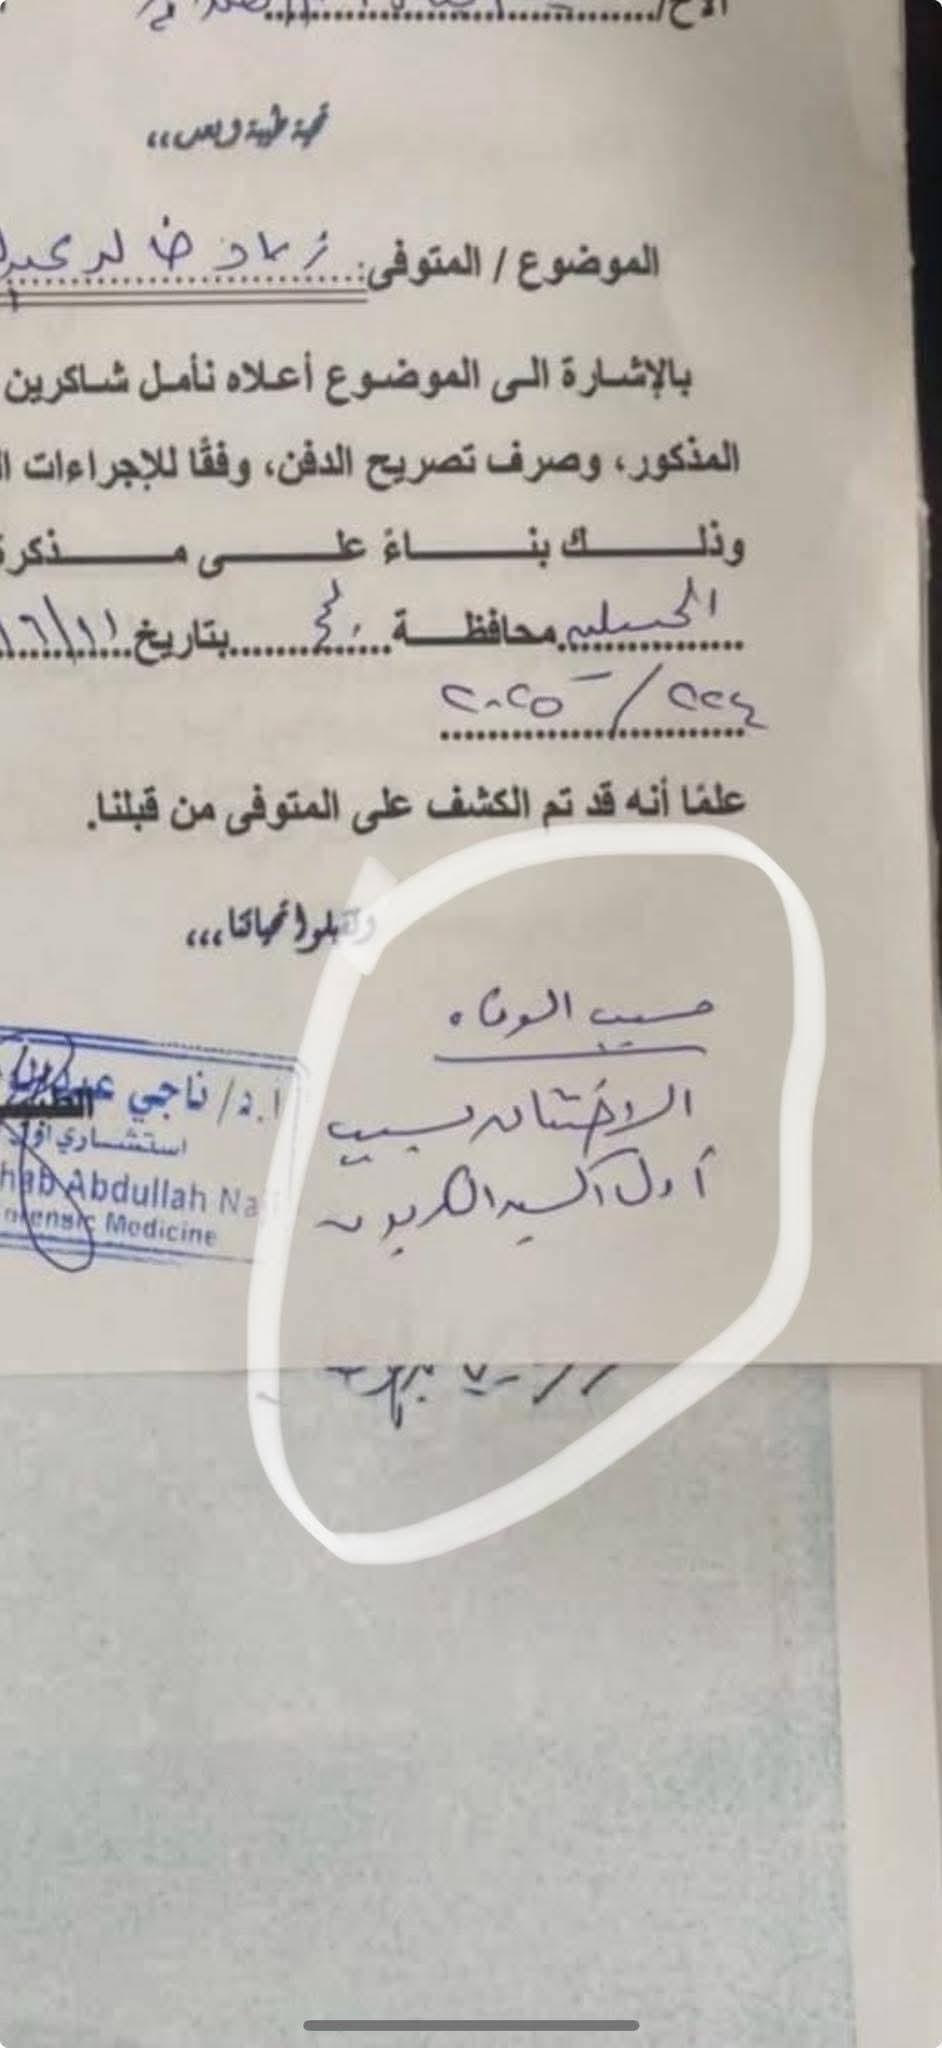 الأخ/
تحية طيبة وبعد،،
الموضوع / المتوفى: زياد خالد
بالإشارة الى الموضوع أعلاه نأمل شاكرين
المذكور، وصرف تصريح الدفن، وفقًا للإجراءات
وذلك بناءً على مذكرة
محافظة بتاريخ
٢٠٢٥ /
علمًا أنه قد تم الكشف على المتوفى من قبلنا.
وتقبلوا تحياتنا،،،
سبب الوفاه
الاختناق بسبب
أول اكسيد الكربون
أ.د/ ناجي
استشاري
hab Abdullah Na
Medicine